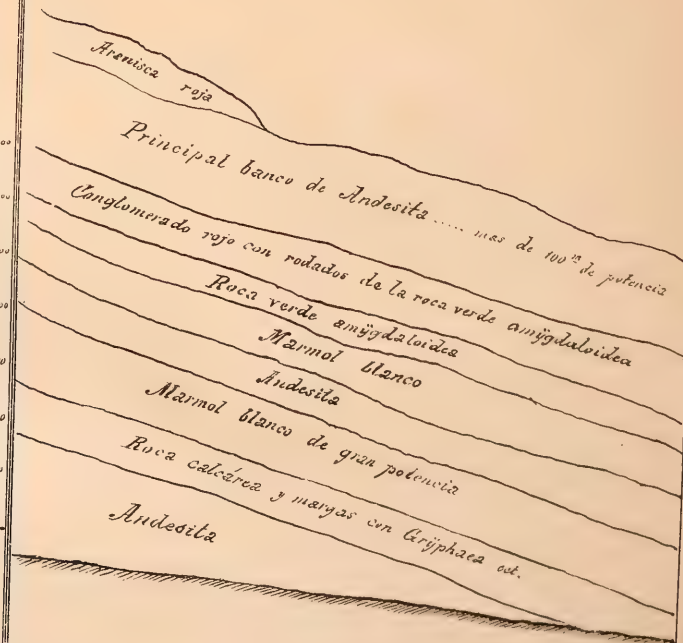 Arenisca roja
Principal banco de Andesita ..... mas de 100 m de potencia
Conglomerado rojo con rodados de la roca verde amÿgdaloidea
Roca verde amÿgdaloidea
Marmol blanco
Andesita
Marmol blanco de gran potencia
Roca calcárea y margas con Grÿphaea
Andesita